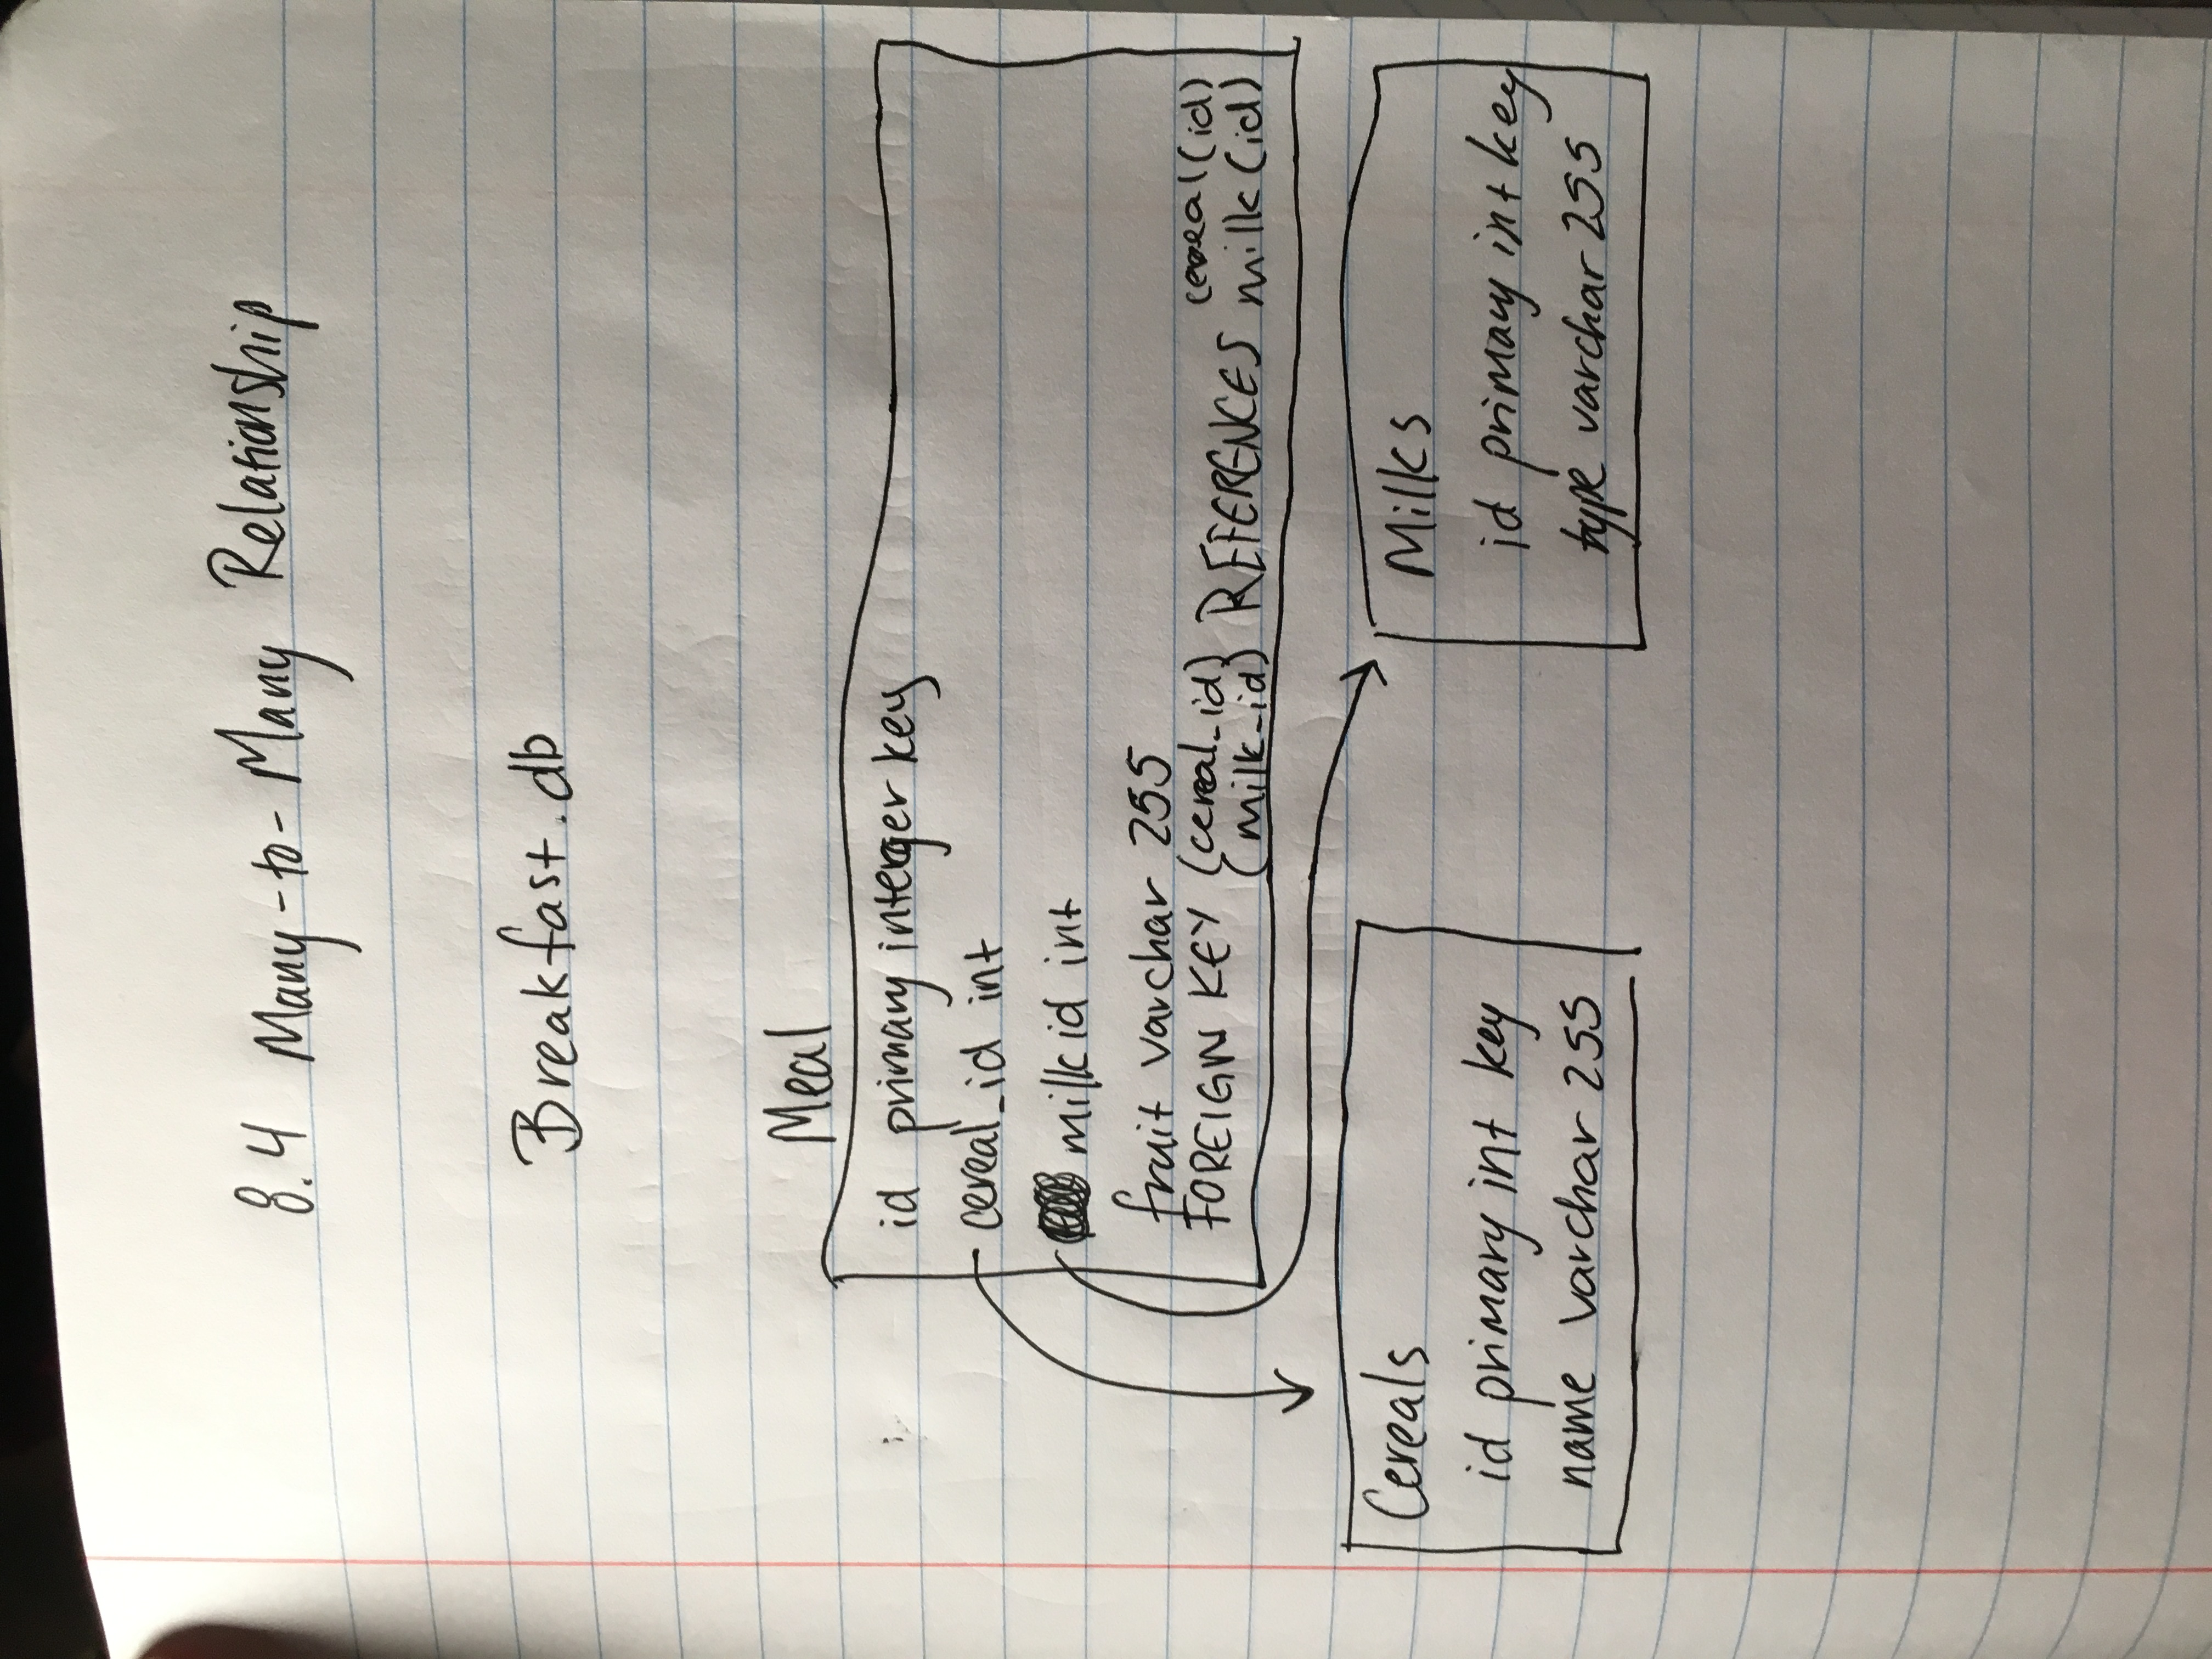 8.4 Many-to-Many Relationship
Breakfast.db
Meal
id primary interger key
cereal_id int
milk id int
fruit varchar 255
FOREIGN KEY (cereal_id) REFERENCES cereal(id)
(milk_id) milk(id)
Cereals
id primary int key
name varchar 255
Milks
id primary int key
type varchar 255